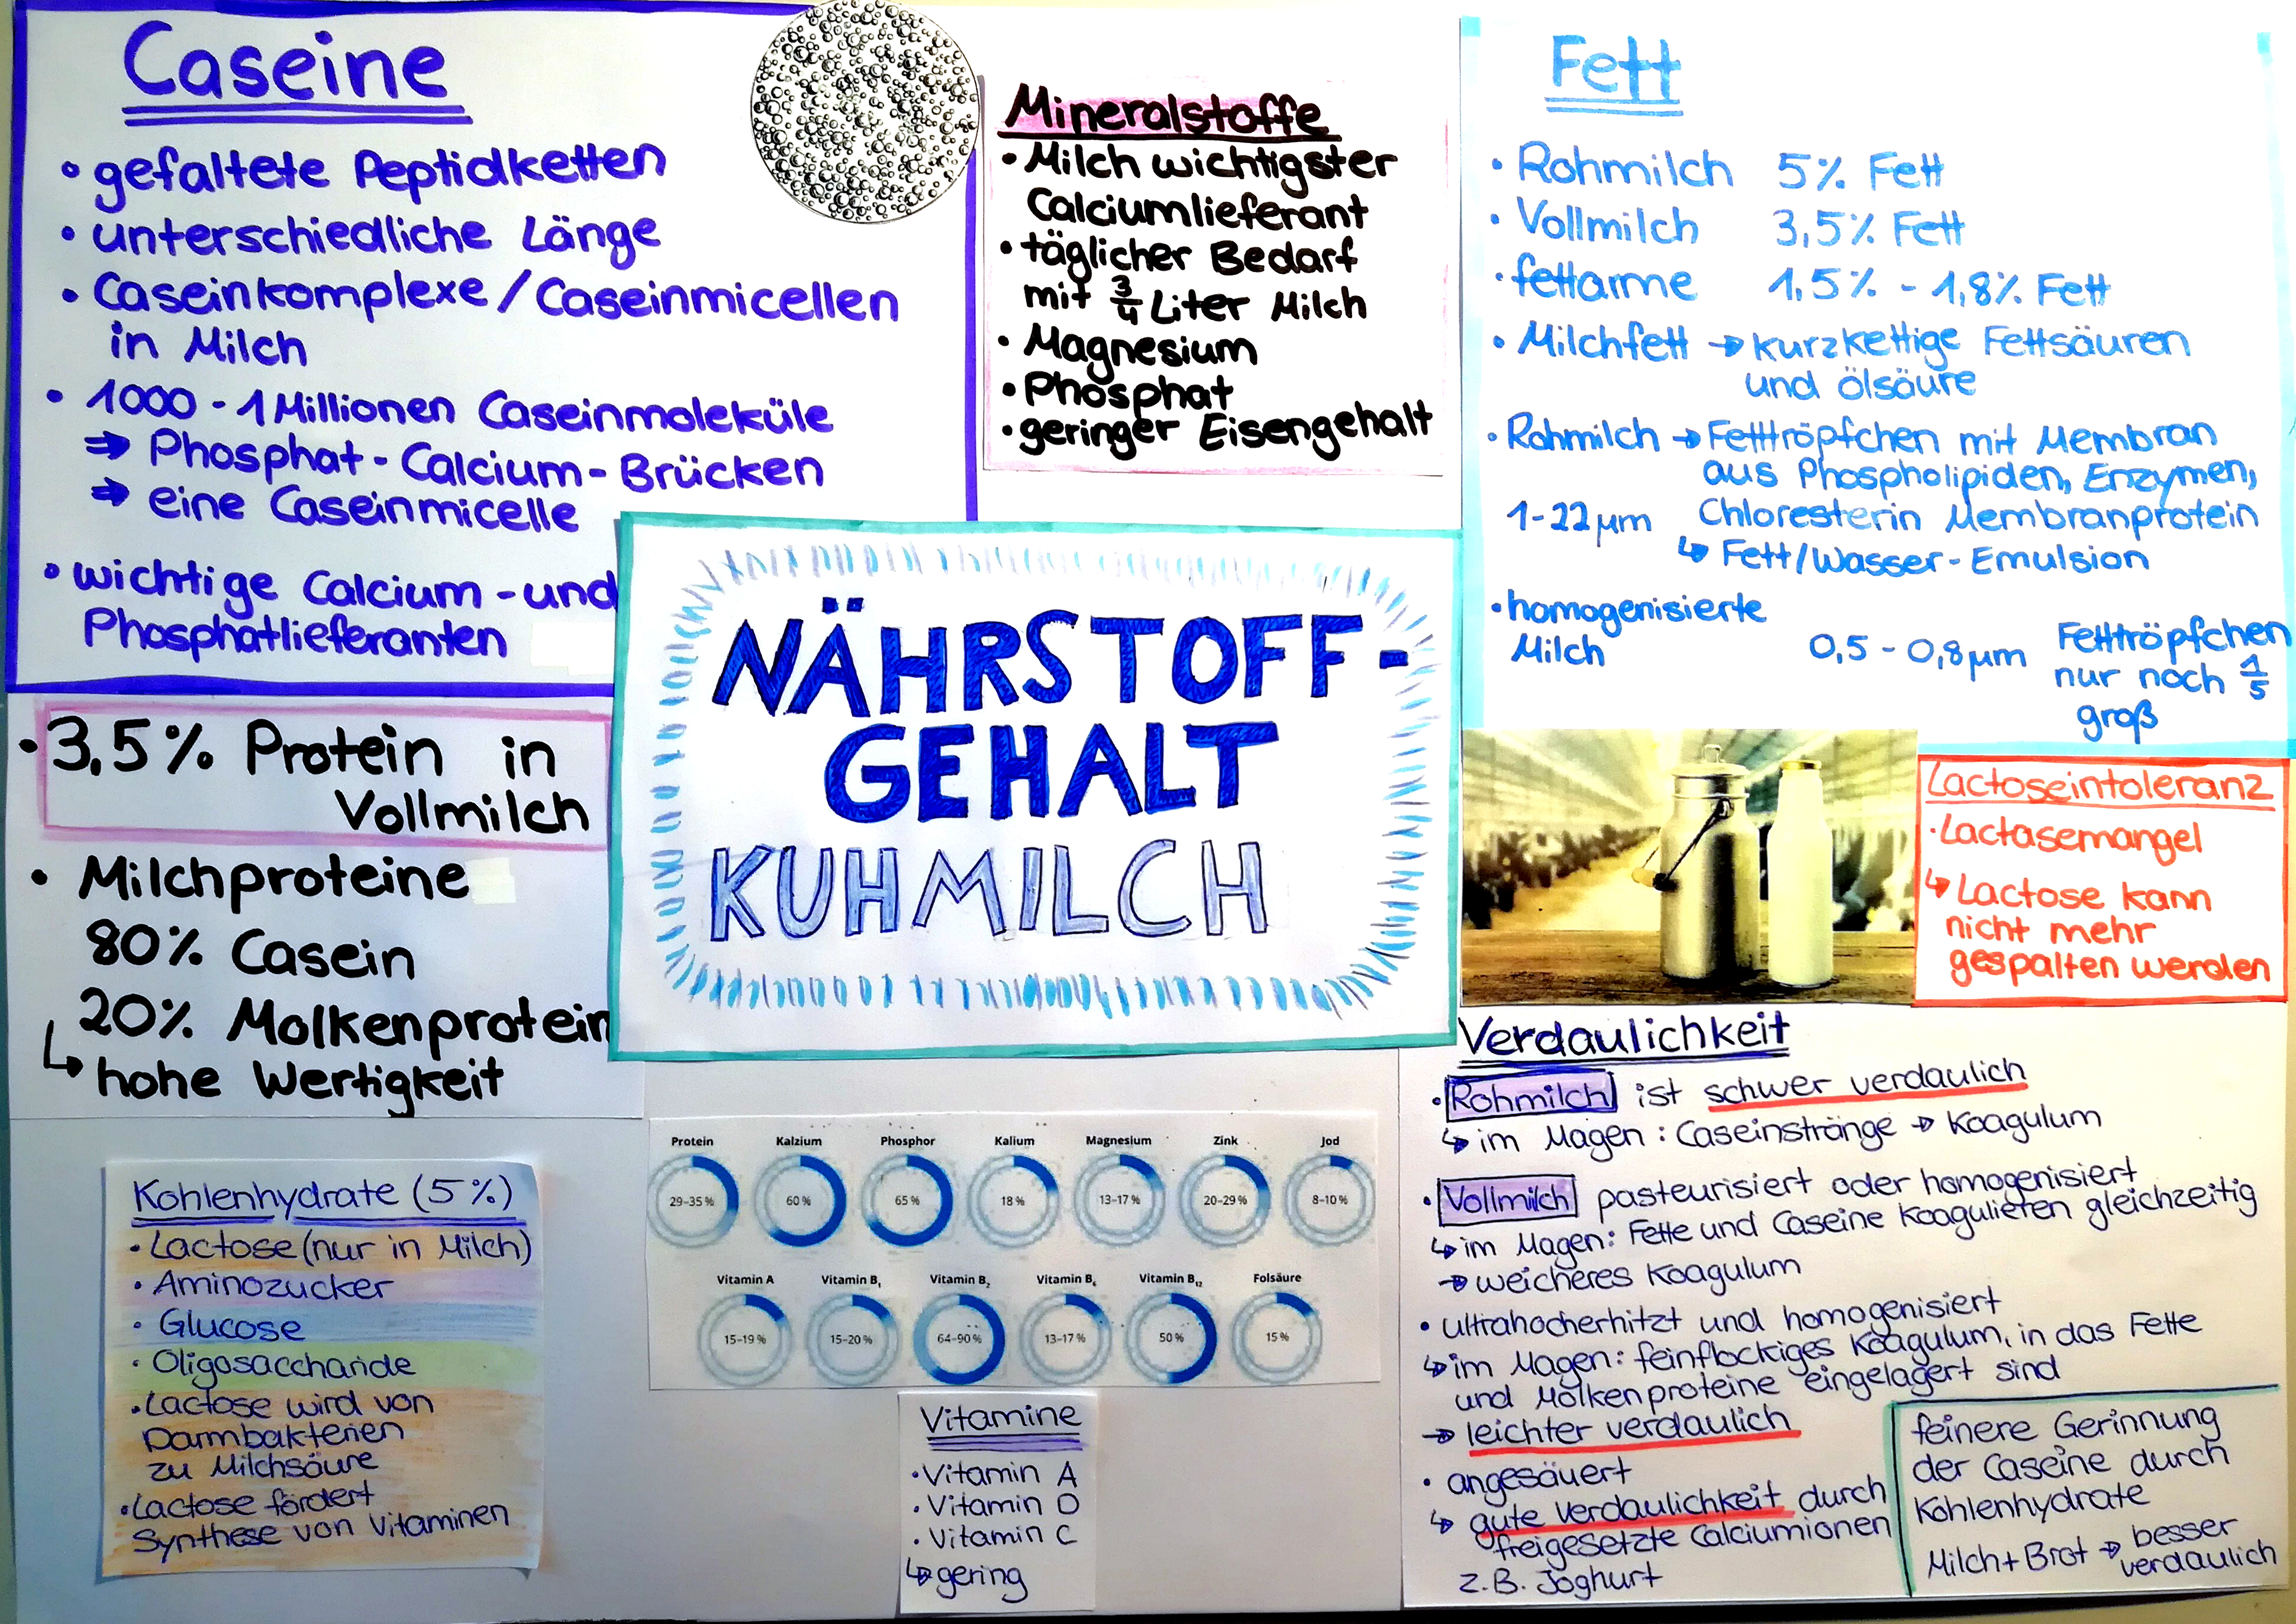 Caseine
• gefaltete Peptidketten
• unterschiedliche Länge
• Caseinkomplexe / Caseinmicellen
in Milch
• 1000 - 1 Millionen Caseinmoleküle
⇒ Phosphat - Calcium - Brücken
⇒ eine Caseinmicelle
• wichtige Calcium - und
Phosphatlieferanten
Mineralstoffe
• Milch wichtigster
Calciumlieferant
• täglicher Bedarf
mit 3/4 Liter Milch
• Magnesium
• Phosphat
• geringer Eisengehalt
Fett
• Rohmilch 5% Fett
• Vollmilch 3,5% Fett
• fettarme 1,5% - 1,8% Fett
• Milchfett → kurzkettige Fettsäuren
und Ölsäure
• Rohmilch → Fetttröpfchen mit Membran
aus Phospholipiden, Enzymen,
1-22 µm Chloresterin Membranprotein
↳ Fett/Wasser-Emulsion
• homogenisierte
Milch 0,5 - 0,8 µm Fetttröpfchen
nur noch 1/5
groß
• 3,5% Protein in
Vollmilch
• Milchproteine
80% Casein
20% Molkenprotein
↳ hohe Wertigkeit
NÄHRSTOFF-
GEHALT
KUHMILCH
Lactoseintoleranz
• Lactasemangel
↳ Lactose kann
nicht mehr
gespalten werden
Kohlenhydrate (5%)
• Lactose (nur in Milch)
• Aminozucker
• Glucose
• Oligosaccharide
• Lactose wird von
Darmbakterien
zu Milchsäure
• Lactose fördert
Synthese von Vitaminen
Protein Kalzium Phosphor Kalium Magnesium Zink Jod
29–35 % 60 % 65 % 18 % 13–17 % 20–29 % 8–10 %
Vitamin A Vitamin B₁ Vitamin B₂ Vitamin B₆ Vitamin B₁₂ Folsäure
15–19 % 15–20 % 64–90 % 13–17 % 50 % 15 %
Vitamine
• Vitamin A
• Vitamin D
• Vitamin C
↳ gering
Verdaulichkeit
• Rohmilch ist schwer verdaulich
↳ im Magen: Caseinstränge → Koagulum
• Vollmilch pasteurisiert oder homogenisiert
↳ im Magen: Fette und Caseine koagulieren gleichzeitig
→ weicheres Koagulum
• ultrahocherhitzt und homogenisiert
↳ im Magen: feinflockiges Koagulum, in das Fette
und Molkenproteine eingelagert sind
→ leichter verdaulich
• angesäuert
↳ gute verdaulichkeit durch
freigesetzte Calciumionen
z.B. Joghurt
feinere Gerinnung
der Caseine durch
Kohlenhydrate
Milch + Brot → besser
verdaulich